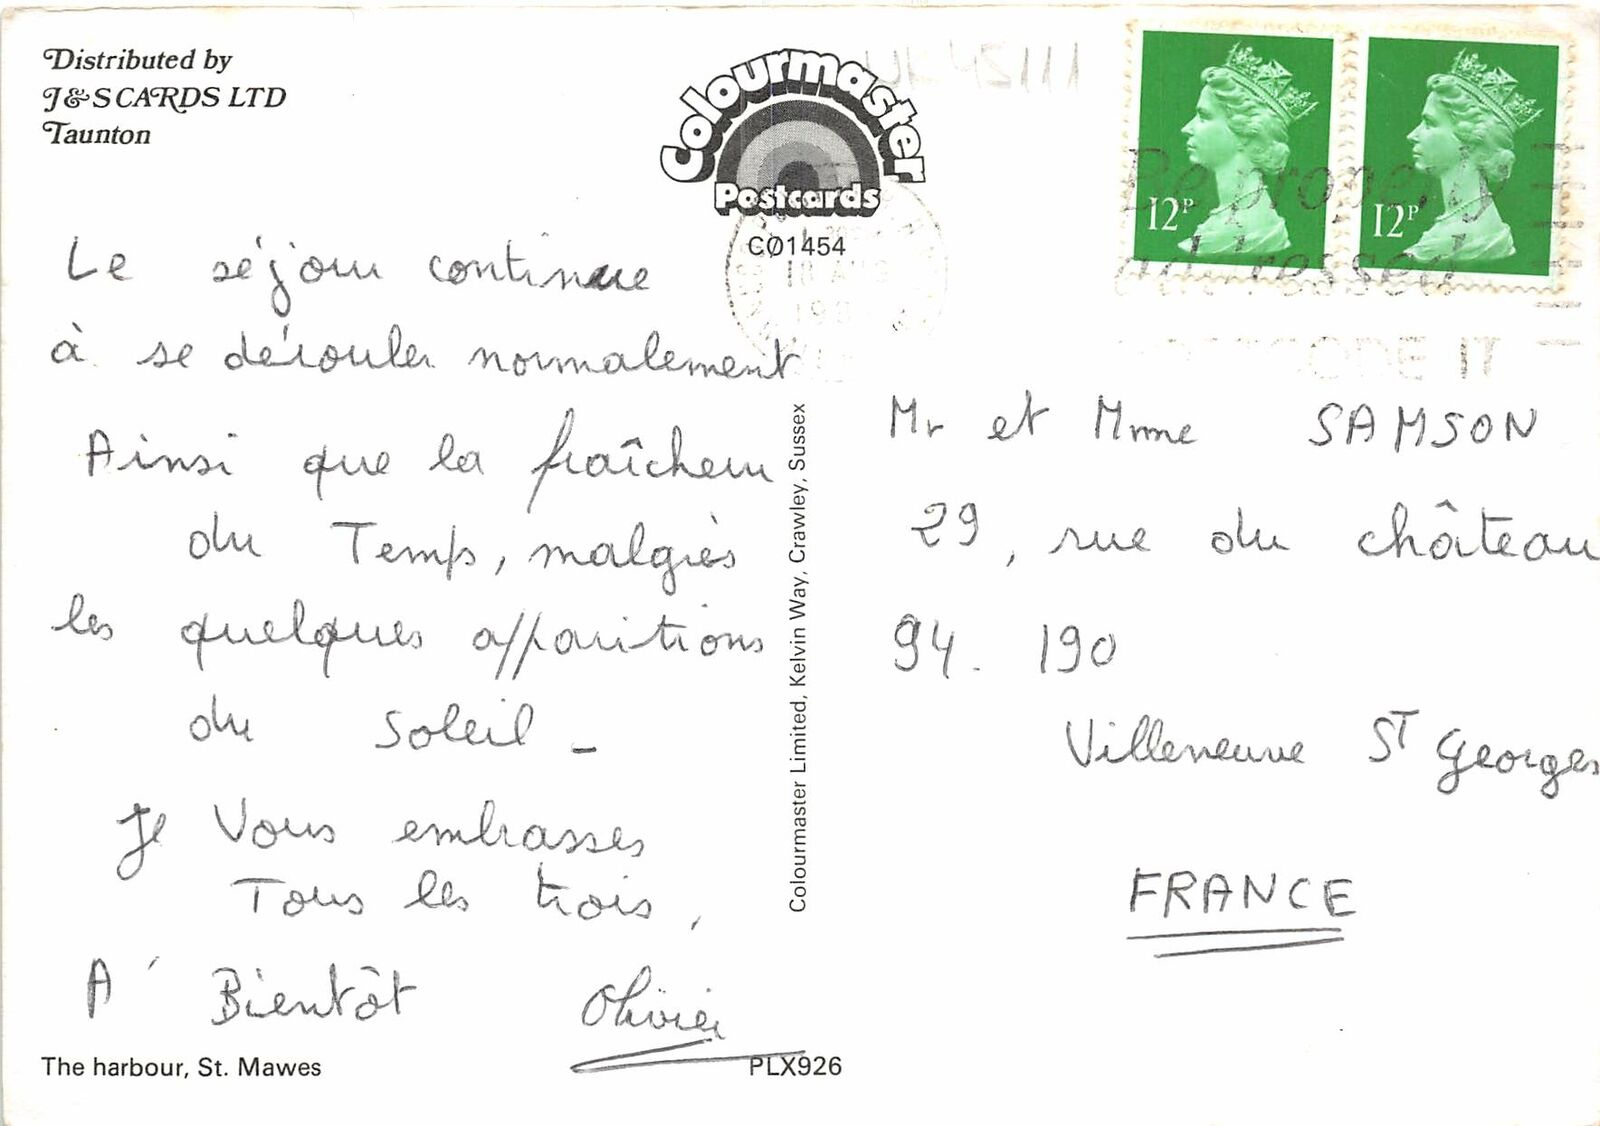 Distributed by
J&S CARDS LTD
Taunton
Colourmaster
Postcards
CØ1454
12P
12P
Be properly
addressed
POSTCODE IT
10 AUG
Le séjour continue
à se dérouler normalement
Ainsi que la fraîcheur
du Temps, malgrès
les quelques apparitions
du soleil -
Je Vous embrasses
Tous les trois,
A' Bientôt Olivier
The harbour, St. Mawes
PLX926
Colourmaster Limited, Kelvin Way, Crawley, Sussex
Mr et Mme SAMSON
29, rue du château
94. 190
Villeneuve ST Georges
FRANCE